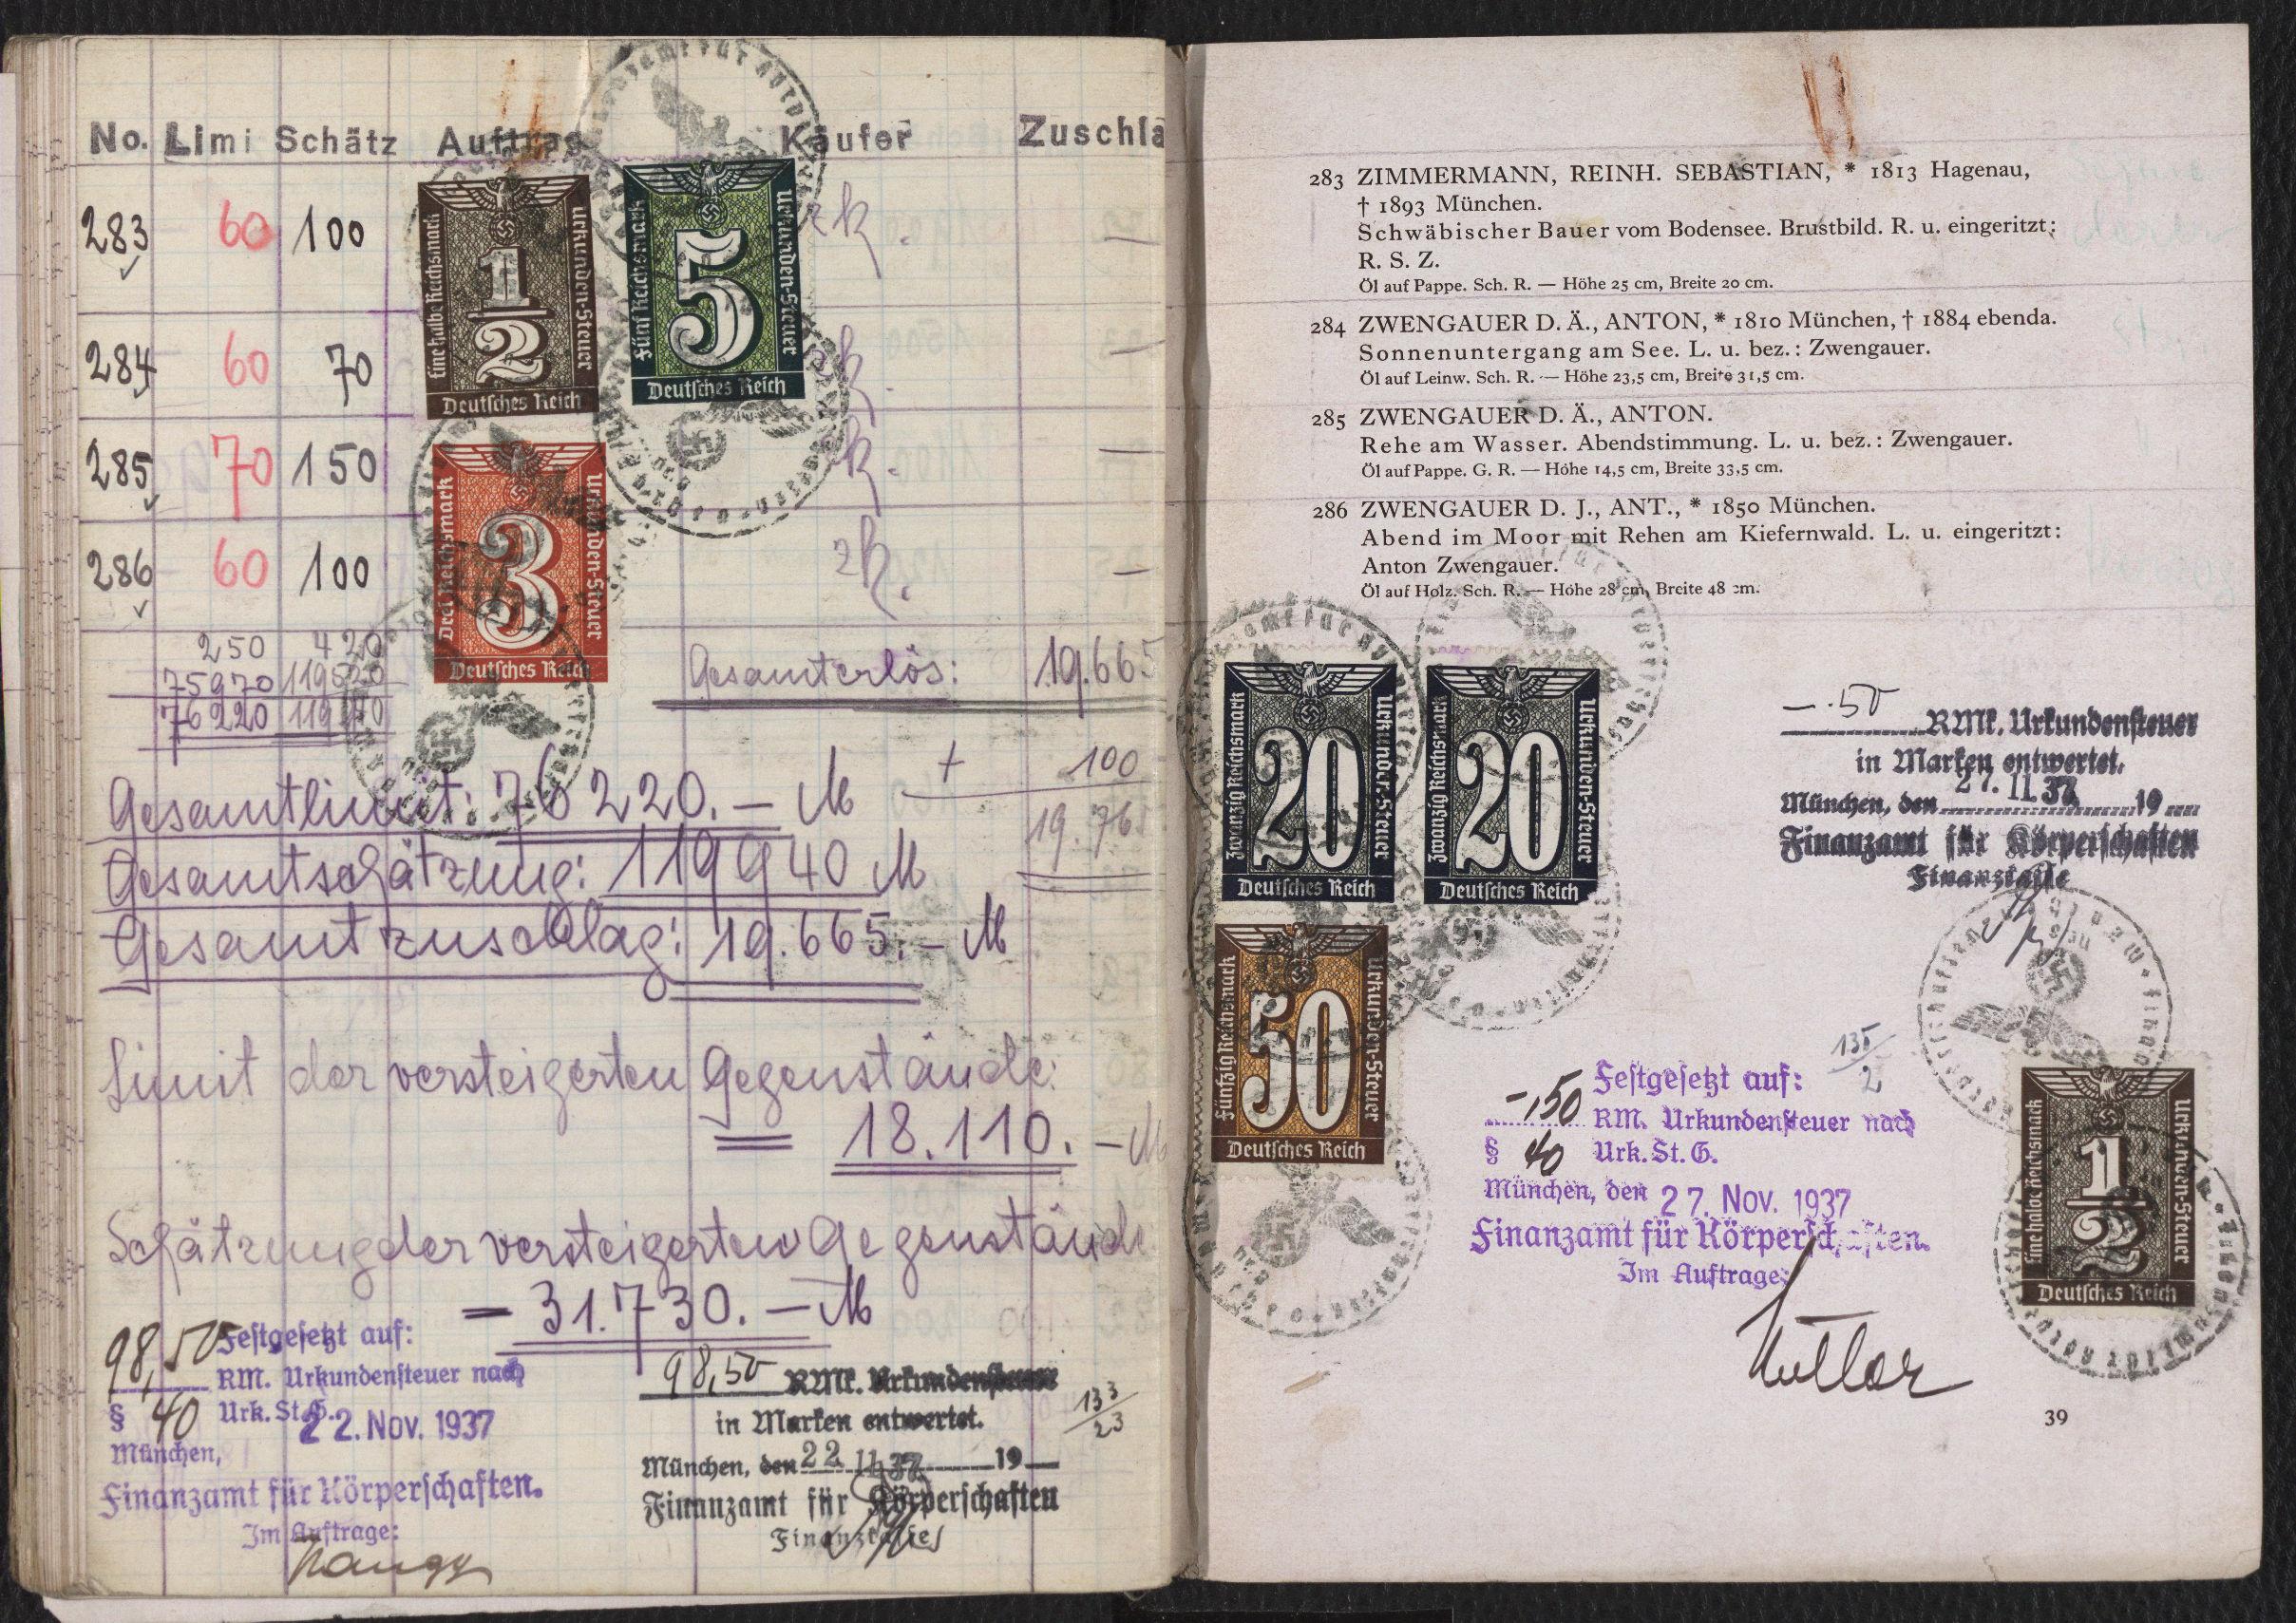 No. Limi Schätz Auftrag Käufer Zuschla
283 60 100 zk. —
284 60 70 zk. —
285 70 150 zk. —
286 60 100 zk. —
Eine halbe Reichsmark
Urkunden-Steuer
1/2
Deutsches Reich
Fünf Reichsmark
Urkunden-Steuer
5
Deutsches Reich
Drei Reichsmark
Urkunden-Steuer
3
Deutsches Reich
250 420
75970 119520
76220 119940
Gesamterlös: 19.665
+ 100
19.76
Gesamtlimit: 76220.— M
Gesamtschätzung: 119940 M
Gesamtzuschlag: 19.665.— M
Limit der versteigerten Gegenstände:
= 18.110.— M
Schätzung der versteigerten Gegenstände
= 31.730.— M
98,50 Festgesetzt auf:
RM. Urkundensteuer nach
§ 40 Urk. St. G.
22. Nov. 1937
München,
Finanzamt für Körperschaften.
Im Auftrage:
98,50 RMk. Urkundensteuer
in Marken entwertet.
München, den 22.11.37 19
Finanzamt für Körperschaften
Finanzkasse
133/23
283 ZIMMERMANN, REINH. SEBASTIAN, * 1813 Hagenau,
† 1893 München.
Schwäbischer Bauer vom Bodensee. Brustbild. R. u. eingeritzt:
R. S. Z.
Öl auf Pappe. Sch. R. — Höhe 25 cm, Breite 20 cm.
284 ZWENGAUER D. Ä., ANTON, * 1810 München, † 1884 ebenda.
Sonnenuntergang am See. L. u. bez.: Zwengauer.
Öl auf Leinw. Sch. R. — Höhe 23,5 cm, Breite 31,5 cm.
285 ZWENGAUER D. Ä., ANTON.
Rehe am Wasser. Abendstimmung. L. u. bez.: Zwengauer.
Öl auf Pappe. G. R. — Höhe 14,5 cm, Breite 33,5 cm.
286 ZWENGAUER D. J., ANT., * 1850 München.
Abend im Moor mit Rehen am Kiefernwald. L. u. eingeritzt:
Anton Zwengauer.
Öl auf Holz. Sch. R. — Höhe 28 cm, Breite 48 cm.
Zwanzig Reichsmark
Urkunden-Steuer
20
Deutsches Reich
Zwanzig Reichsmark
Urkunden-Steuer
20
Deutsches Reich
Fünfzig Reichsmark
Urkunden-Steuer
50
Deutsches Reich
—.50 RMk. Urkundensteuer
in Marken entwertet.
München, den 27.11.37 19
Finanzamt für Körperschaften
Finanzkasse
135/2
Festgesetzt auf:
-,50 RM. Urkundensteuer nach
§ 40 Urk. St. G.
München, den 27. Nov. 1937
Finanzamt für Körperschaften.
Im Auftrage:
Eine halbe Reichsmark
Urkunden-Steuer
1/2
Deutsches Reich
39